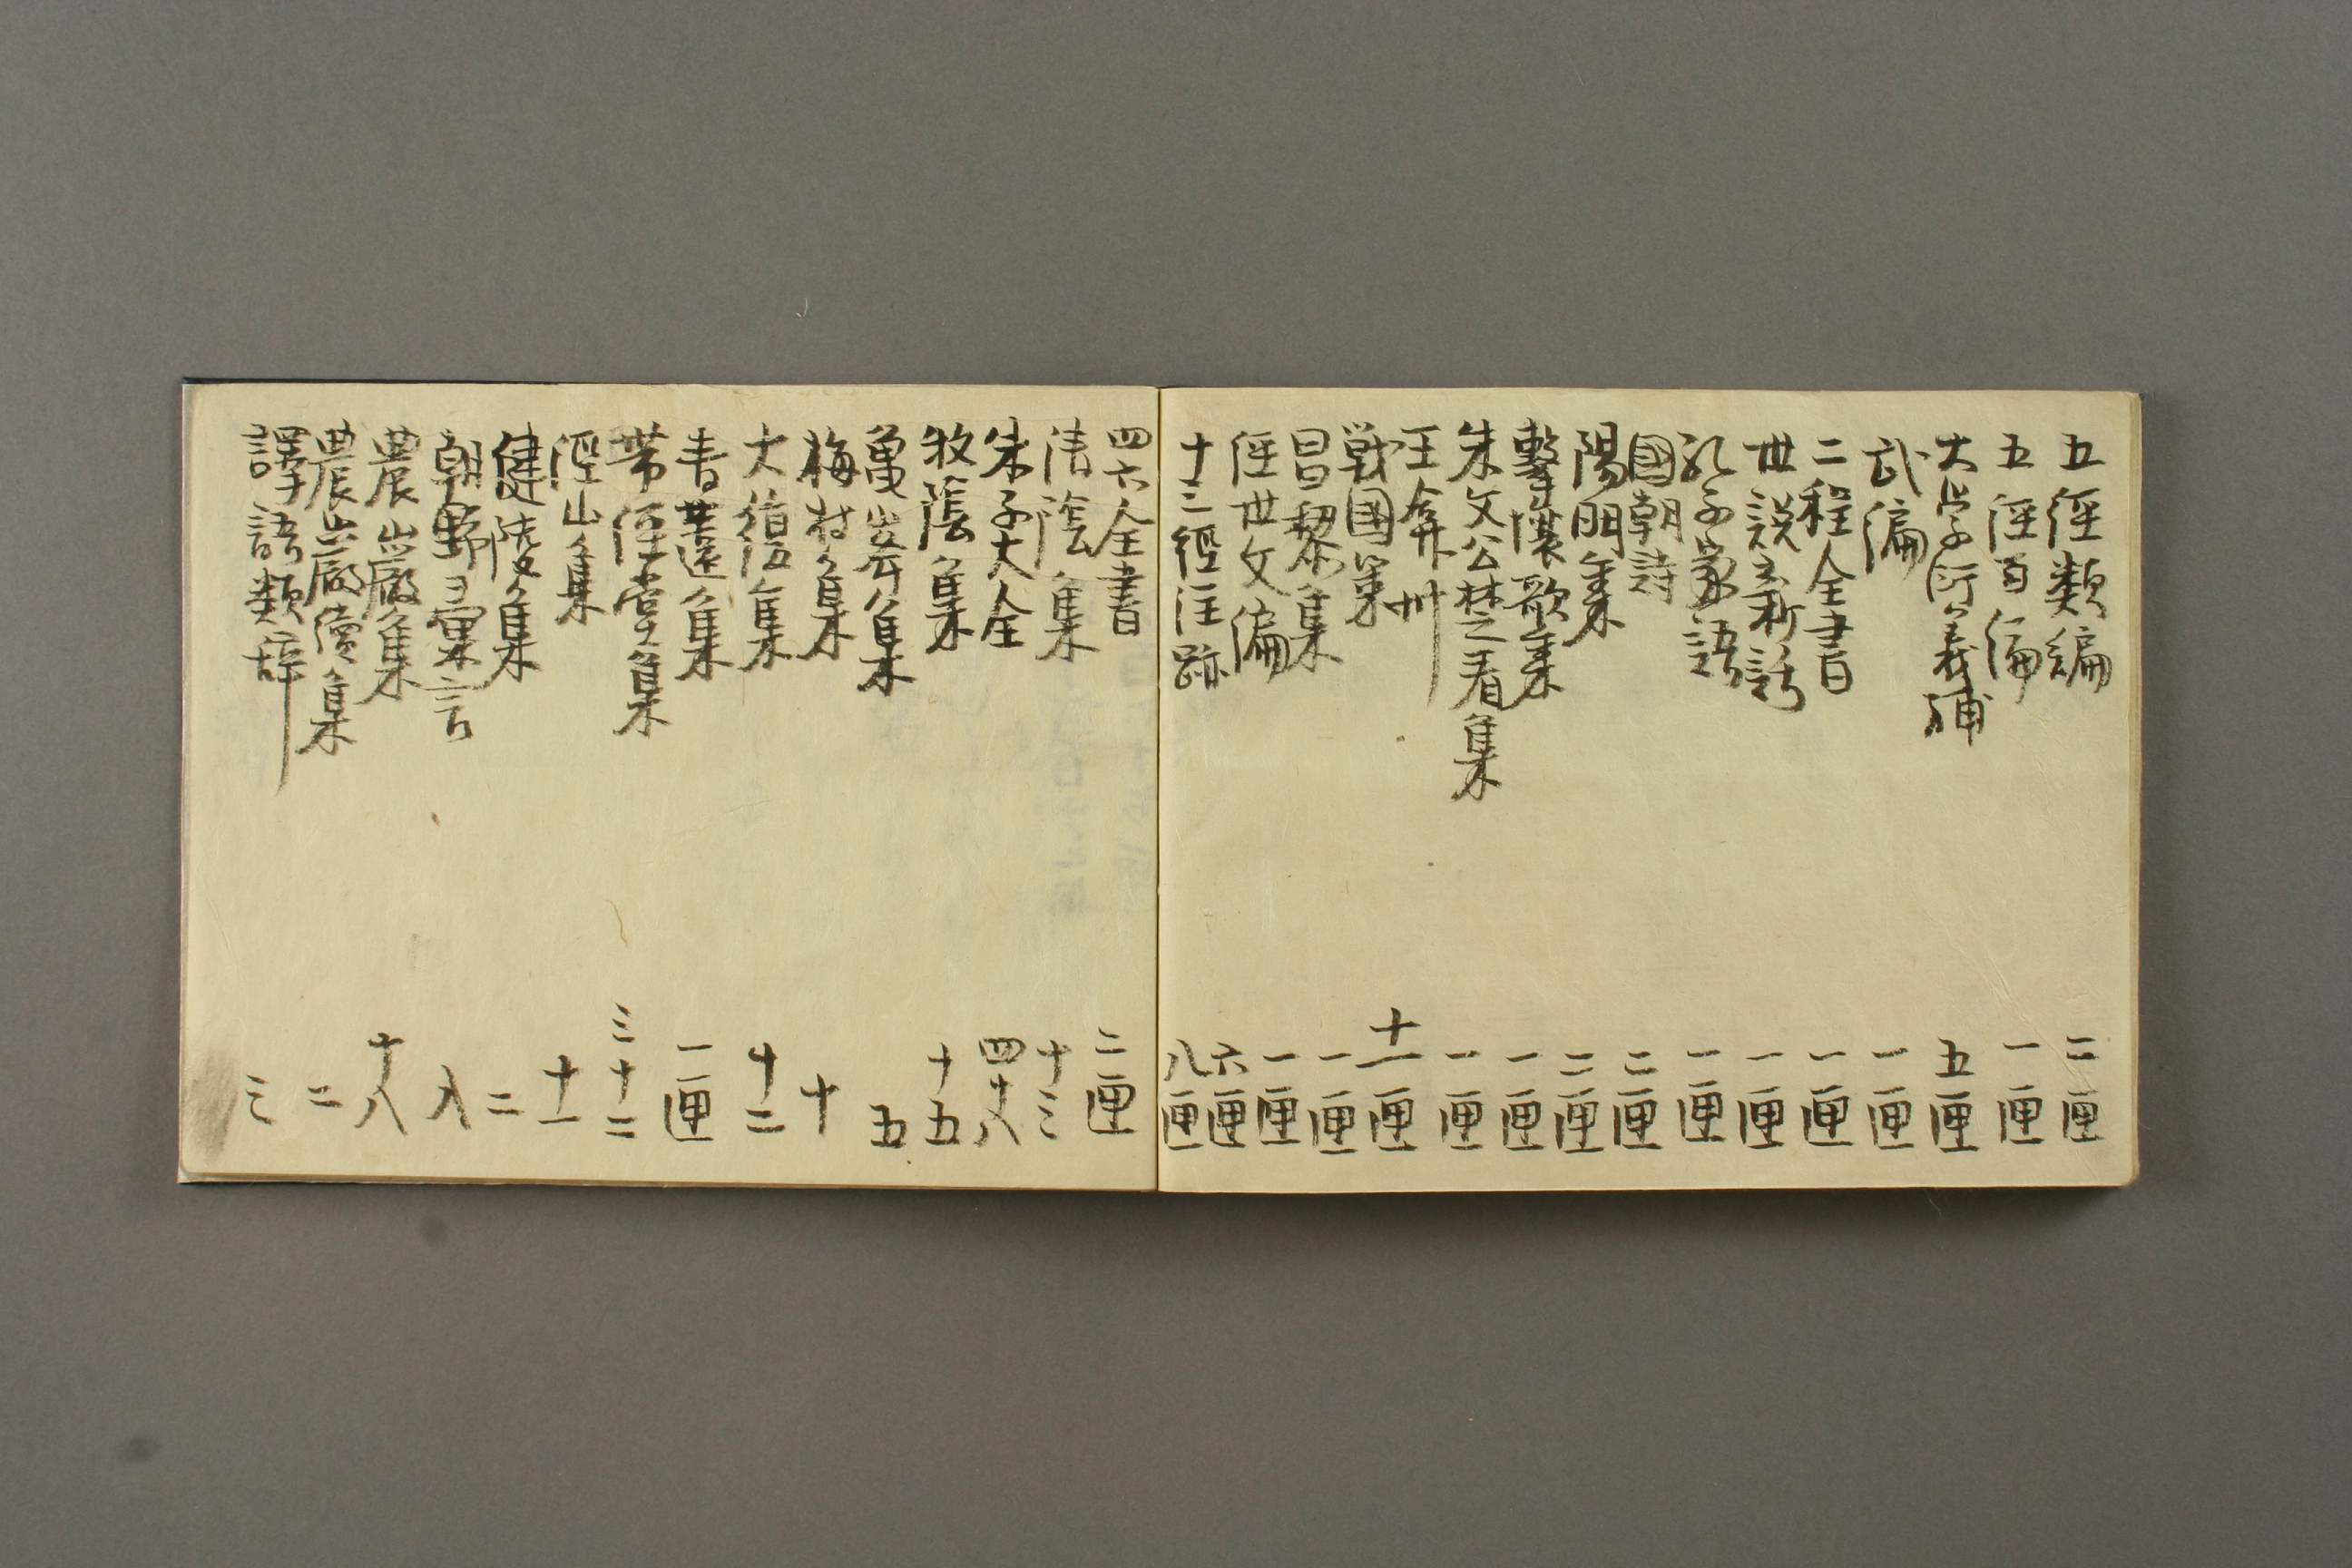 五経類編 二匣
五経百編 一匣
大学衍義補 五匣
武編 一匣
二程全書 一匣
世說新語 一匣
孔子家語 一匣
國朝詩 二匣
陽明集 二匣
擊壤歌集 一匣
朱文公楚看集 一匣
王弇州 十一匣
戰國策 一匣
昌黎集 一匣
経世文編 六匣
十三經注跡 八匣
四六全書 二匣
清陰集 十三
朱子大全 四十八
牧隱集 十五
集 五
梅村集 十
大復集 十二
青蓮集 一匣
帯経堂集 三十二
涇山集 十一
健陵集 二
朝野彙言 八
農巖集 十八
農巖續集 二
譯語類辞 三